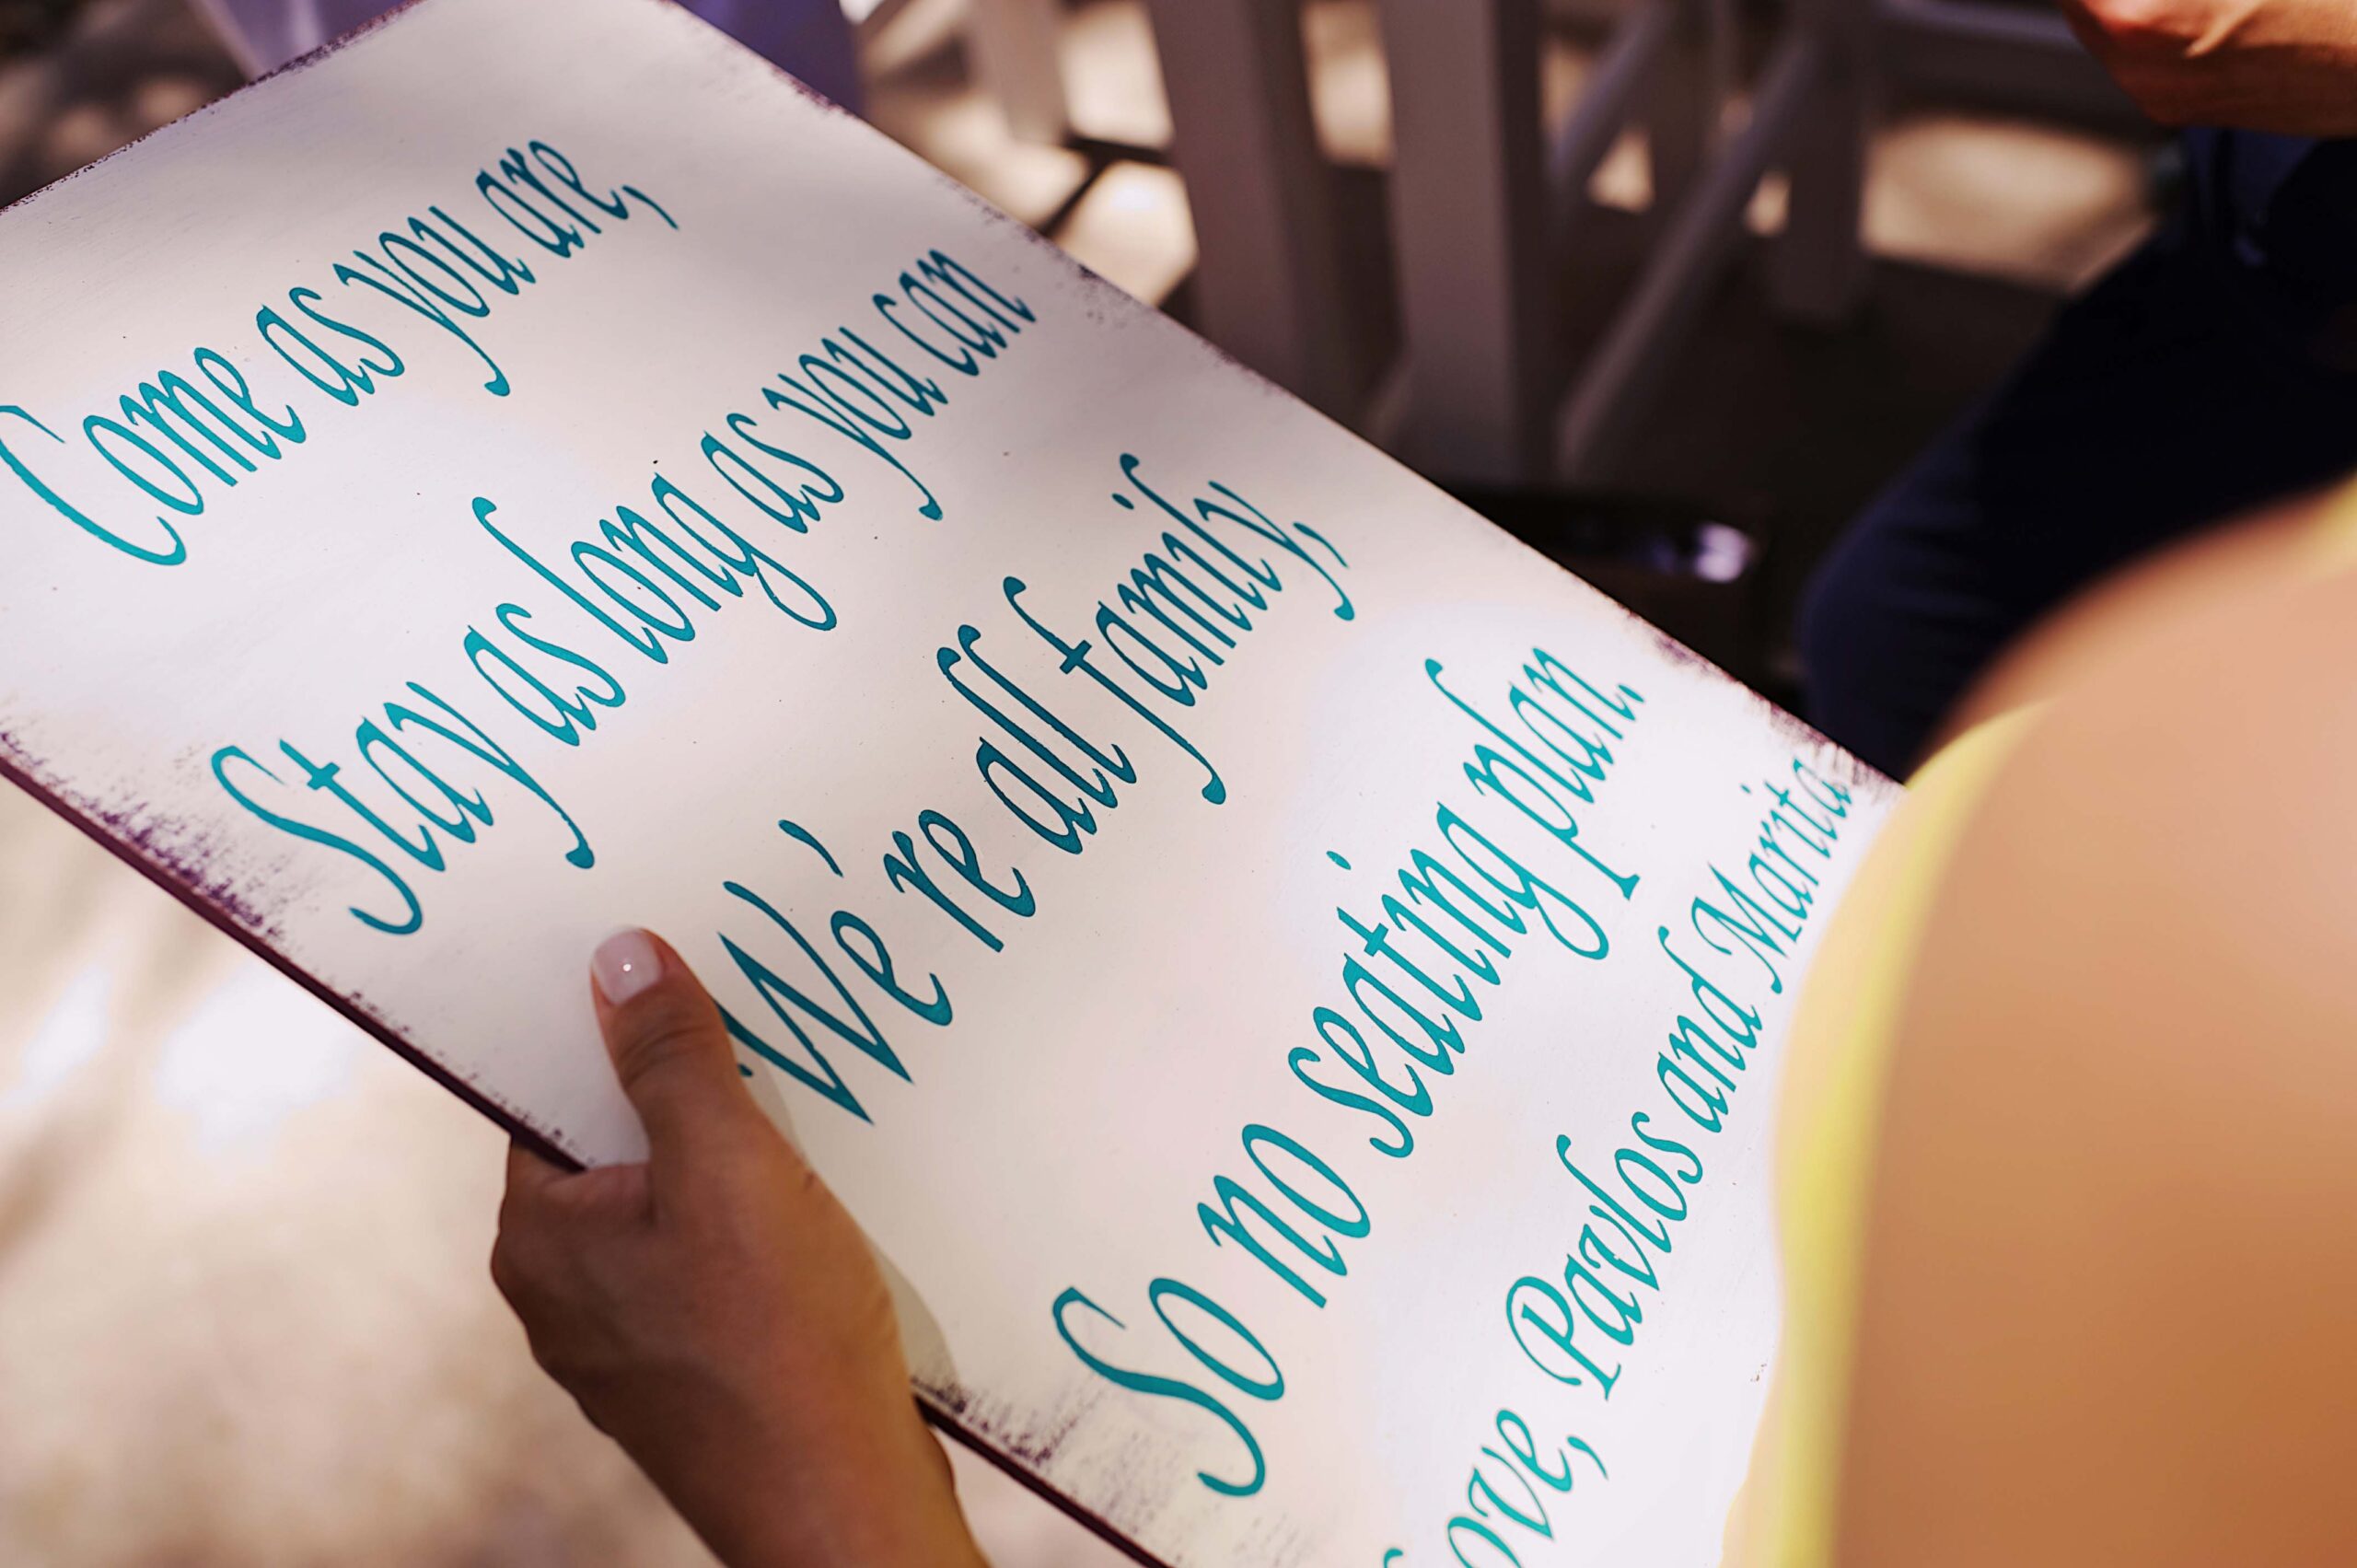 Come as you are,
Stay as long as you can
We're all family,
So no seating plan.
Love, Pavlos and Marita